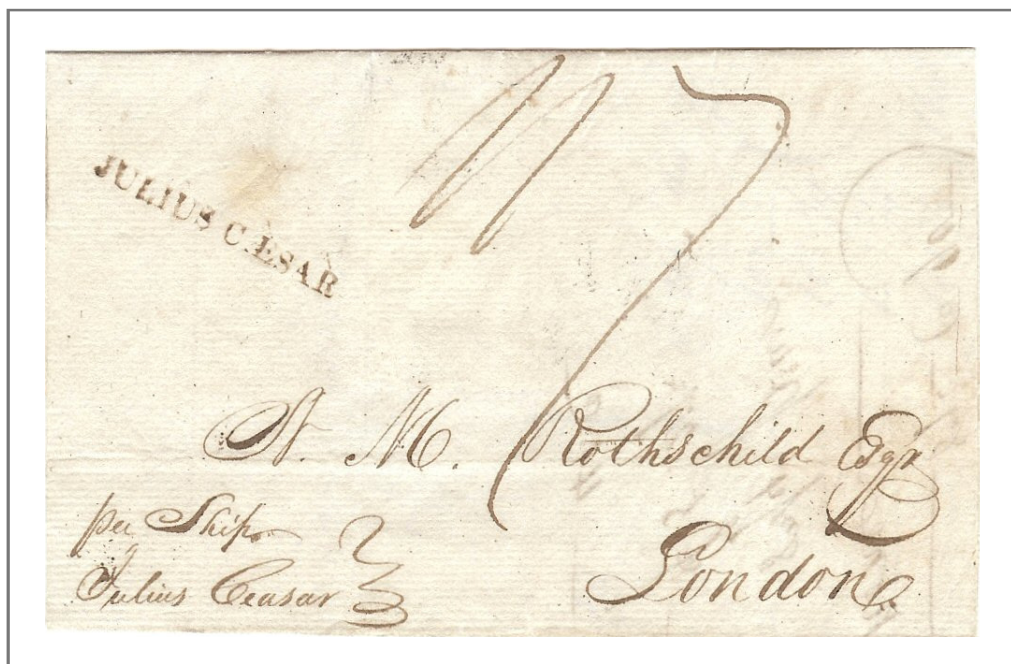 JULIUS CÆSAR
N. M. Rothschild Esqr
London
per Ship
Julius Ceasar